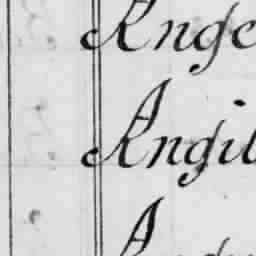 Ange
Angil